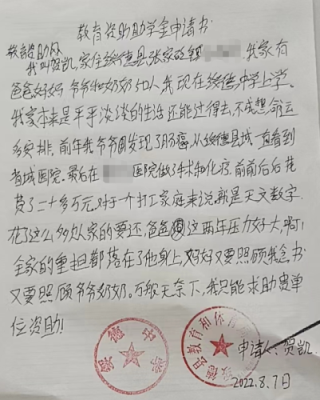 教育资助助学金申请书
敬爱资助人
我叫贺凯,家住绥德县张家砭镇 我家有
爸爸妈妈 爷爷和奶奶5口人,我现在绥德中学上学。
我家本来是平平淡淡的生活还能过得去,不成想命运
多安排,前年我爷爷因发现了肠癌,从绥德县城一直看到
省城医院.最后在 医院做了手术和化疗,前前后后花
费了二十多万元,对于一个打工家庭来说就是天文数字
花了这么多的从家的要还,爸爸因这两年压力好大,啊!
全家的重担都落在了他身上,妈妈又要照顾我念书
又要照顾爷爷奶奶。万般无奈下,我只能求助贵单
位资助!
绥德中学
绥德县教育和体育
申请人:贺凯
2022.8.7日